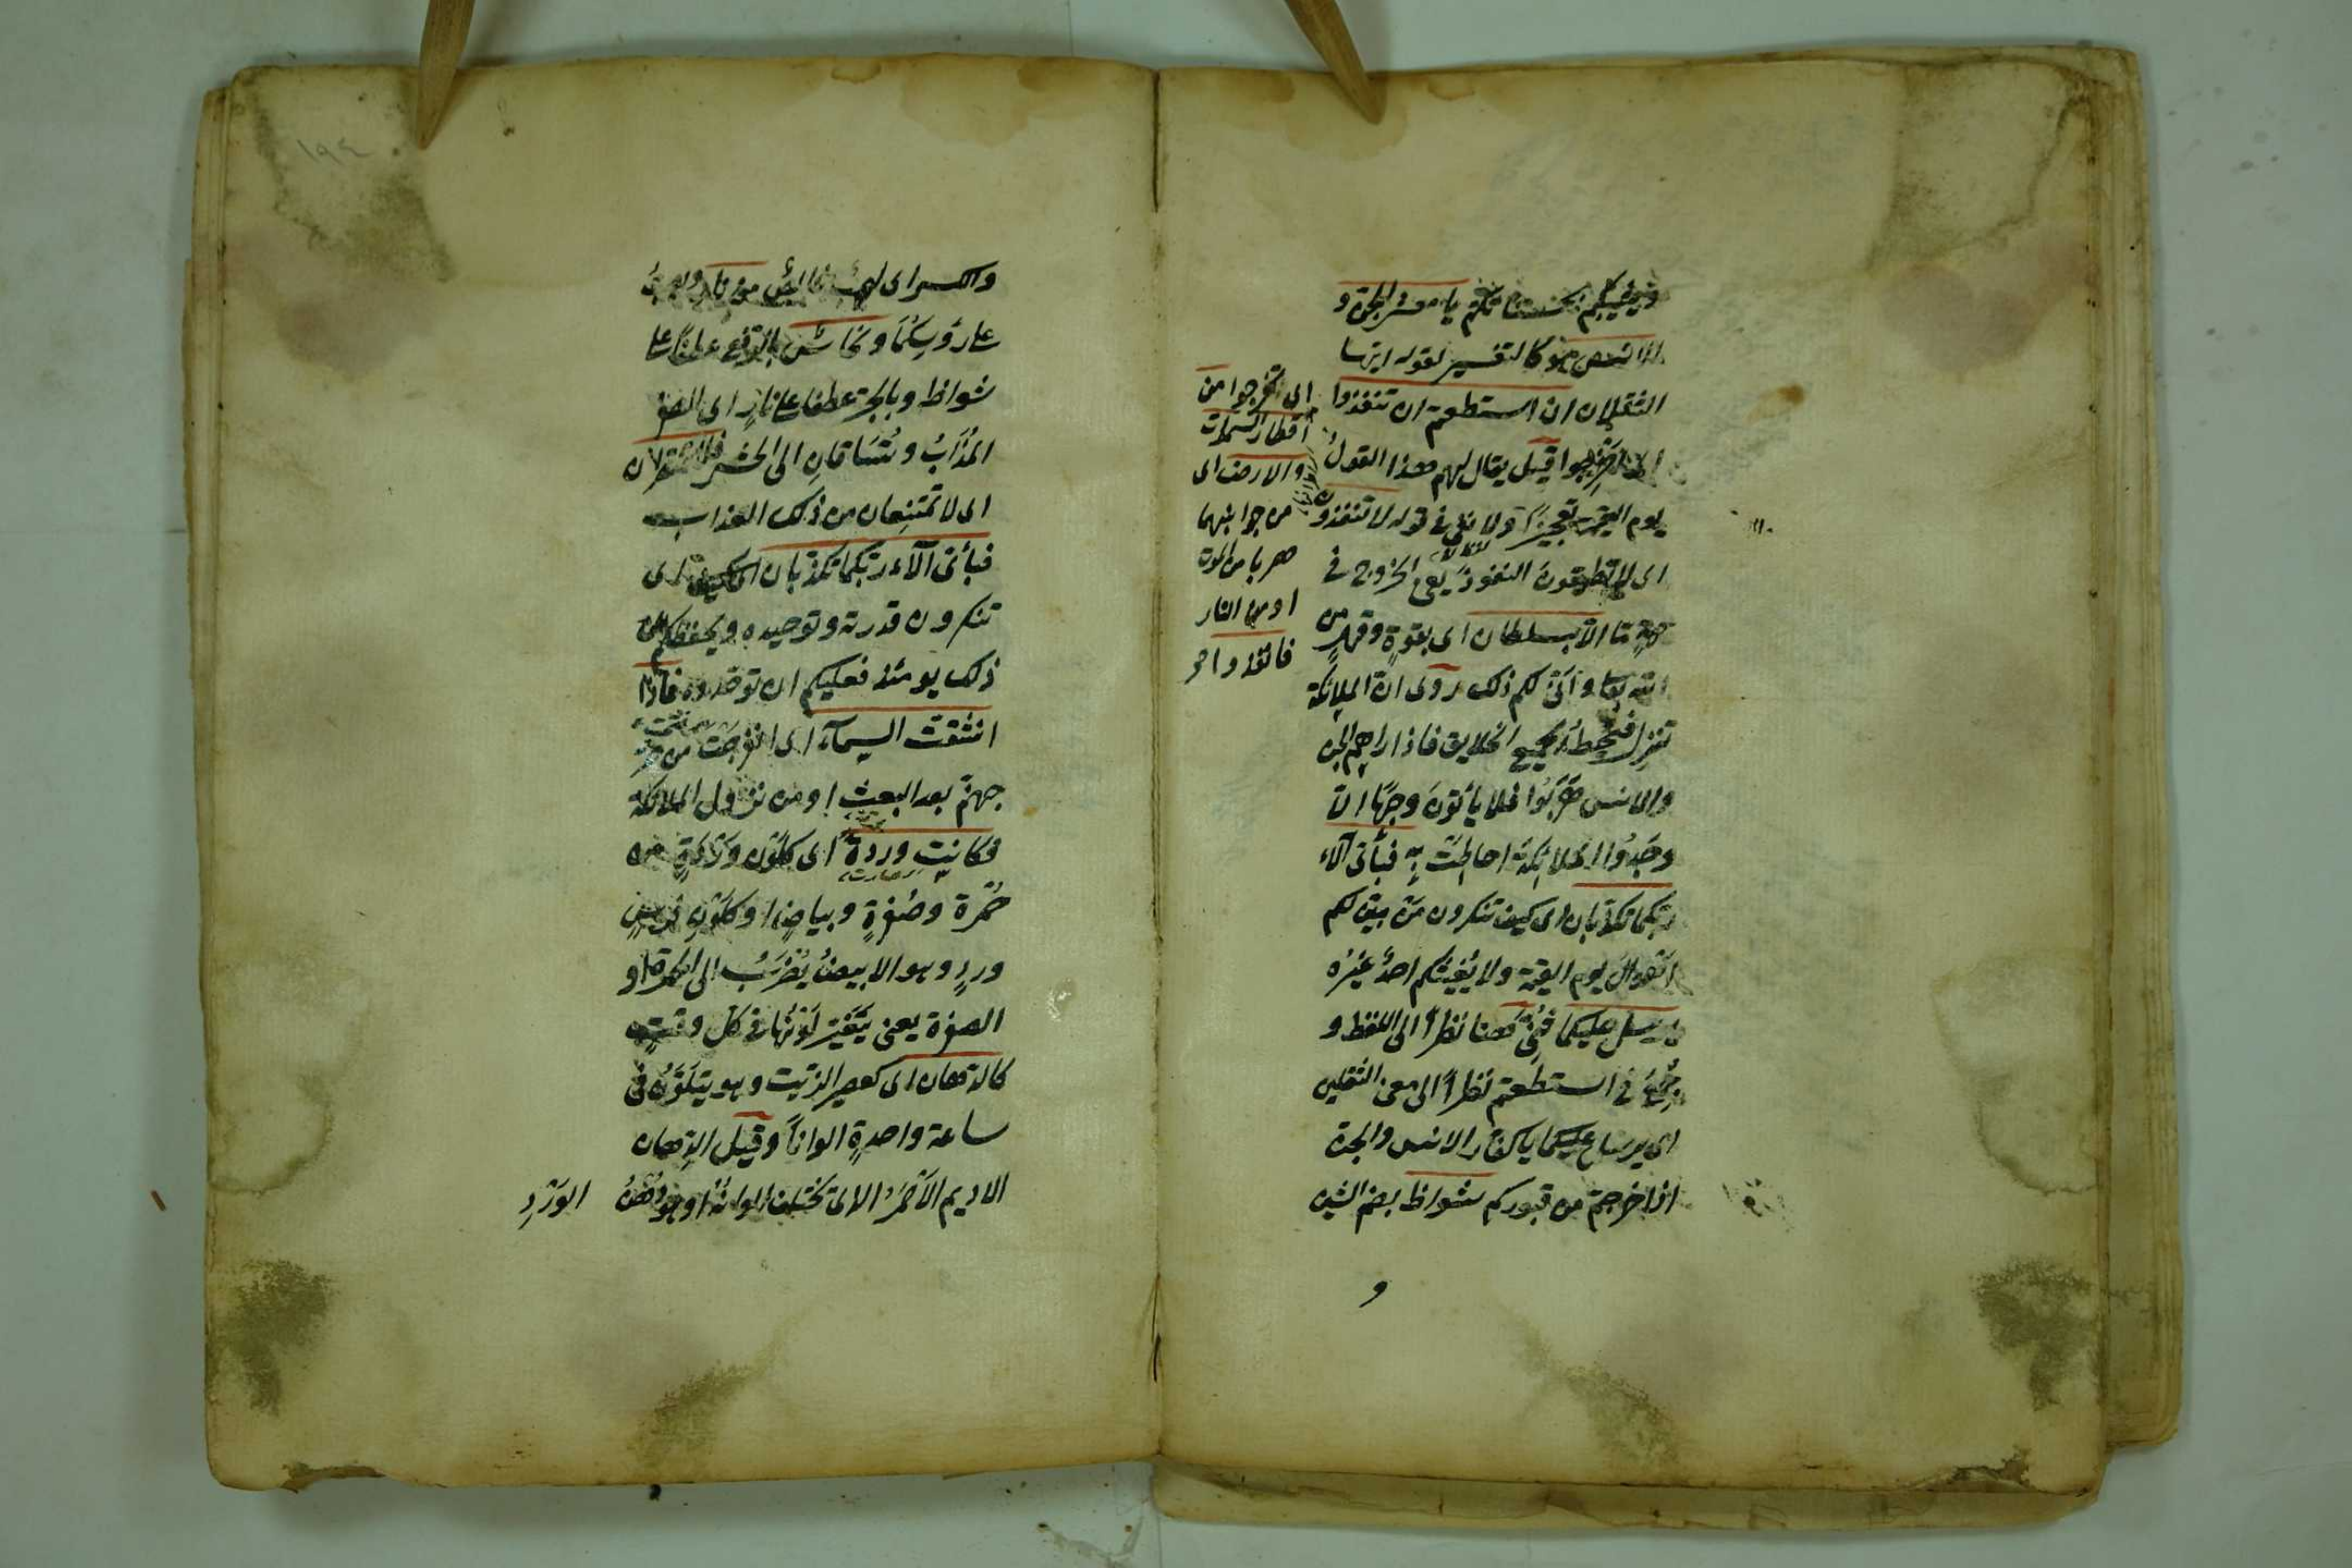 يا معشر الجن و
الانس هو كالتفسير لقوله ايها
الثقلان ان استطعتم ان تنفذوا
اى تخرجوا من
اقطار السموات
والارض اى
من جوانبهما
هربا من الموت
او من النار
فانفذوا
قيل يقال لهم هذا القول
يوم القيمة تعجيزا ولا فى قوله لا تنفذون
اى لا تطيقون النفوذ يعنى الخروج فى
جهة ما الا بسلطان اى بقوة وقهر من
الله تعالى وانى لكم ذلك روى ان الملائكة
تنزل فتحيط بجميع الخلايق فاذا راهم الجن
والانس هربوا فلا يأتون وجها الا
وجدوا الملائكة احاطت به فبأى آلاء
ربكما تكذبان اى كيف تنكرون من يبين لكم
احوال يوم القيمة ولا يغيثكم احد غيره
يرسل عليكما ثنى هنا نظرا الى اللفظ و
جمع فى استطعتم نظرا الى معنى الثقلين
اى يرسل عليكما يا كفار الانس والجن
اذا خرجتم من قبوركم شواظ بضم الشين
و
١٩٤
والكسر اى لهب خالص من نار
على رؤسكما ونحاس بالرفع عطفا على
شواظ وبالجر عطفا على نار اى الصفر
المذاب وتساقان الى الحشر فلا تنتصران
اى لا تمتنعان من ذلك العذاب
فبأى آلاء ربكما تكذبان اى كيف
تنكرون قدرته وتوحيده ويحفظكم من
ذلك يومئذ فعليكم ان توحدوه فاذا
انشقت السماء اى انفرجت من
جهنم بعد البعث او من نزول الملائكة
فكانت وردة اى كلون وردة من
صارت
حمرة وصفرة وبياض او كلون فرس
ورد وهو الابيض يضرب الى الحمرة او
الصفرة يعنى يتغير لونها فى كل وقت
كالدهان اى كعصير الزيت وهو يتلون فى
ساعة واحدة الوانا وقيل الدهان
الاديم الاحمر الا انه تختلف الوانه او جمع دهن
الورد